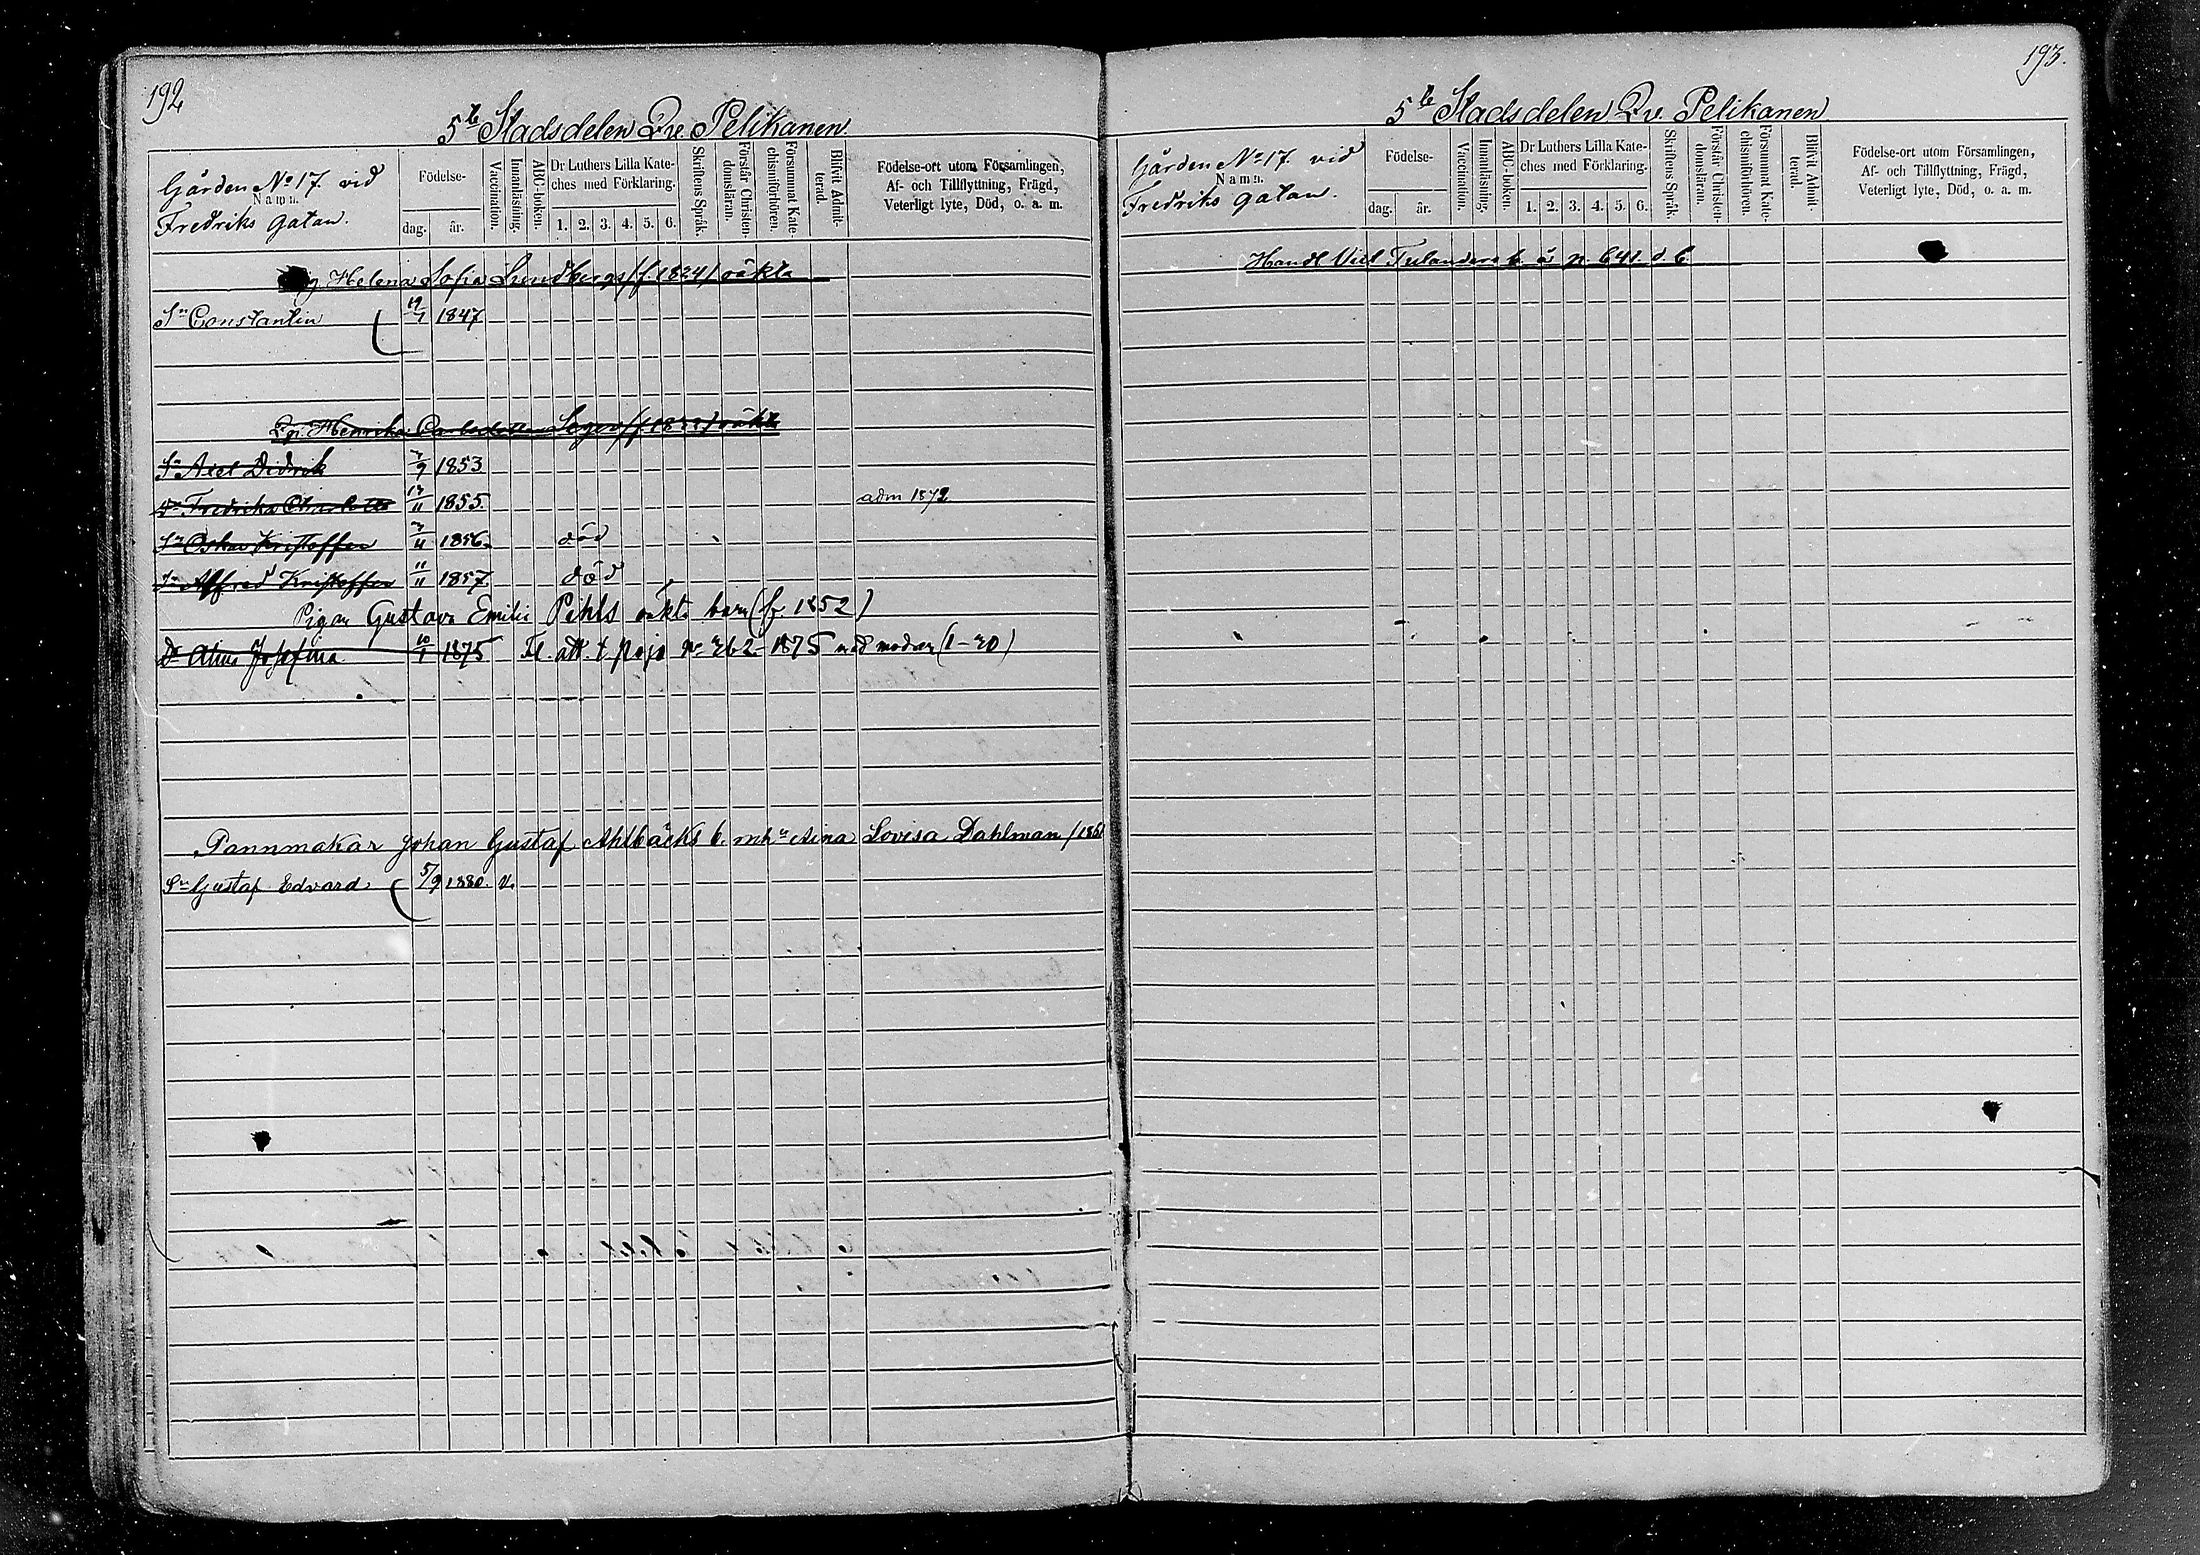 192
5te Stadsdelen Qv. Pelikanen
Gården No 17 vid
Namn.
Fredriks gatan.
Födelse-
dag. år.
Vaccination.
Innanläsning.
ABC-boken.
Dr Luthers Lilla Kate-
ches med Förklaring.
1. 2. 3. 4. 5. 6.
Skriftens Språk.
Förstår Christen-
domsläran.
Försummat Kate-
chismiförhören.
Blifvit Admit-
terad.
Födelse-ort utom Församlingen,
Af- och Tillflyttning, Frägd,
Veterligt lyte, Död, o. a. m.
Helena Sofia Lundbergs (f. 1824) oäkta
Sn Constantin 19/1 1847
Qp. Henrika oäkta
Sn Axel Didrik 3/9 1853
Dr Fredrika Charlotta 13/11 1855. adm 1872
Sn Oskar Kristoffer 1856. död
Sn Alfred Kristoffer 11/11 1857. död
Pigan Gustava Emilie Pihls oäkta barn (f. 1852)
Dr Alma Josefina 10/1 1875 Fl. att. t. Pojo No 362 1875 med modren (1-20)
Pannmakar Johan Gustaf Ahlbäcks b. m hu Aina Lovisa Dahlman /186
Sn Gustaf Edvard 5/9 1880. v.
193.
5te Stadsdelen Qv. Pelikanen
Gården No 17 vid
Namn.
Fredriks gatan.
Födelse-
dag. år.
Vaccination.
Innanläsning.
ABC-boken.
Dr Luthers Lilla Kate-
ches med Förklaring.
1. 2. 3. 4. 5. 6.
Skriftens Språk.
Förstår Christen-
domsläran.
Försummat Kate-
chismiförhören.
Blifvit Admit-
terad.
Födelse-ort utom Församlingen,
Af- och Tillflyttning, Frägd,
Veterligt lyte, Död, o. a. m.
Handl. Tulanders b. å p. 641 d. b.